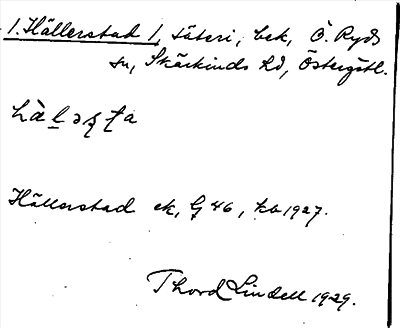 1. Hällerstad 1, säteri, bek, Ö. Ryds
sn, Skärkinds hd, Östergötl.
Hällerstad ek, G 46, kb 1927.
Thord Lindell 1929.